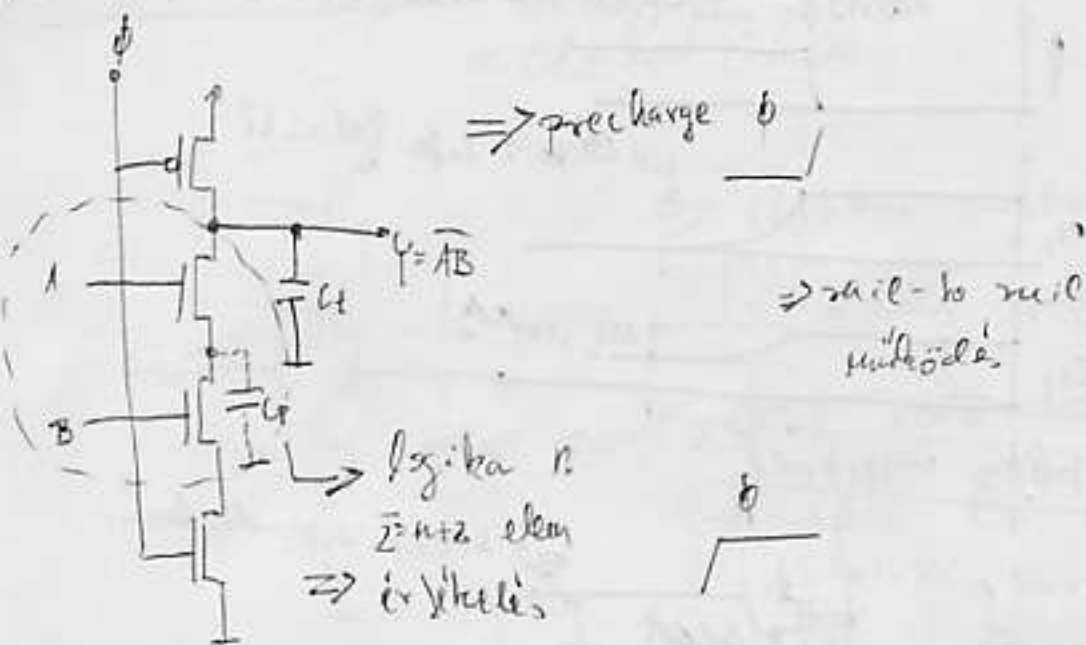 ϕ
⇒ precharge ϕ
Y = \overline{AB}
A
Ct
⇒ rail-to rail
működés
B
Cp
→ logika n
Σ=n+2 elem
⇒ értékelés
ϕ